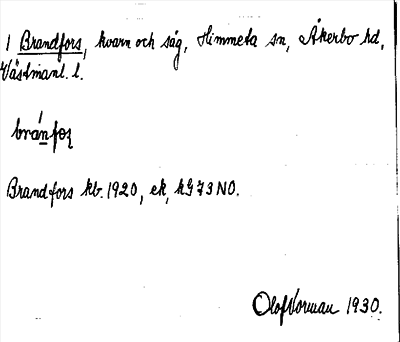 1 Brandfors, kvarn och såg, Himmeta sn, Åkerbo hd,
Västmanl. l.
bránfọʂ
Brandfors kb. 1920, ek, kG 73 NO.
Olof Norman 1930.